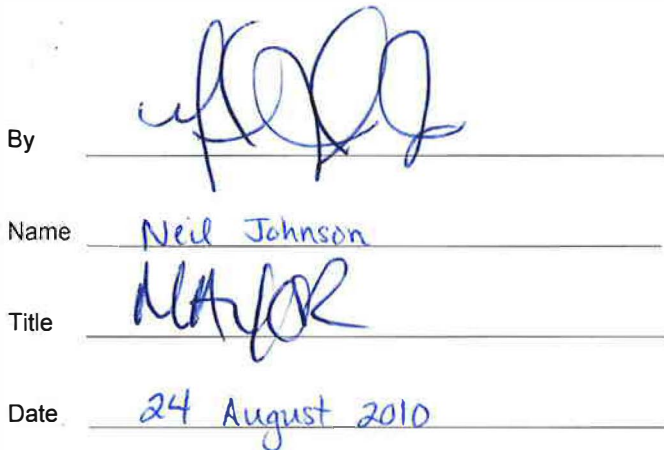 By
Name Neil Johnson
Title MAYOR
Date 24 August 2010